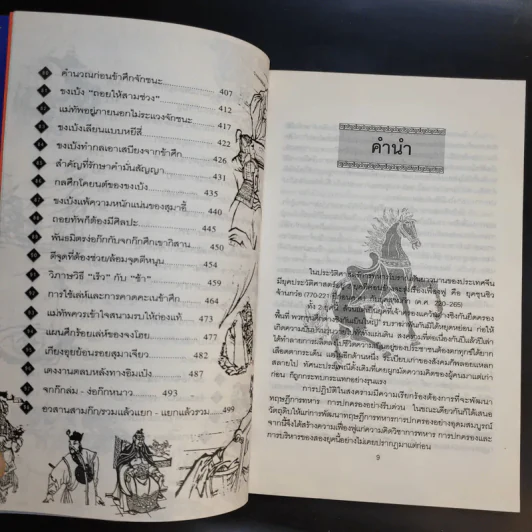 คำนวณก่อนข้าศึกจักชนะ 407
ขงเบ้ง "ถอยให้สามช่วง" 412
แม่ทัพอยู่ภายนอกไม่ระแวงจักชนะ 417
ขงเบ้งเลียนแบบหยีสี่ 422
ขงเบ้งทำกลเอาเสบียงจากข้าศึก 426
สำคัญที่รักษาคำมั่นสัญญา 431
กลศึกโคยนต์ของขงเบ้ง 435
ขงเบ้งแพ้ความหนักแน่นของสุมาอี้ 440
ถอยทัพก็ต้องมีศิลปะ 445
พันธมิตรง่อก๊กกับจกก๊กศึกเขากิสาน 450
ตีจุดที่ต้องช่วย/ล้อมจุดตีหนุน 454
วิภาษวิธี "เร็ว" กับ "ช้า" 459
การใช้เล่ห์และการคาดคะเนข้าศึก 464
แม่ทัพควรเข้าใจสนามรบให้ถ่องแท้ 469
แผนศึกร้อยเล่ห์ของจงโฮย 477
เกียงอุยย้อนรอยสุมาเจียว 482
เตงงานตลบหลังทางอิมเป๋ง 487
จกก๊กล่ม - ง่อก๊กหนาว 493
อวสานสามก๊ก/รวมแล้วแยก - แยกแล้วรวม 499
คำนำ
ในประวัติศาสตร์การทหารอันยาวนานของประเทศจีน
มียุคประวัติศาสตร์อยู่ 2 ยุคที่ค่อนข้างจะเฟื่องฟู คือ ยุคชุนชิว
จ้านกว๋อ (770-221 ปีก่อนค.ศ.) กับยุคสามก๊ก (ค.ศ. 220-265)
เลือดตากระเด็น และอีกด้านหนึ่ง ระเบียบเก่าของสังคมก็พลอยแหลก
สลายไป ทัศนะประเพณีดั้งเดิมที่เคยผูกมัดความคิดของผู้คนมาแต่เก่า
ก่อน ก็ถูกกระทบกระแทกอย่างรุนแรง
การปฏิบัติในสงครามมีความเรียกร้องต้องการที่จะพัฒนา
ทฤษฎีการทหาร การปกครองอย่างรีบด่วน ในขณะเดียวกันก็ได้เสนอ
วัตถุดิบให้แก่การพัฒนาทฤษฎีการทหารการปกครองอย่างอุดมสมบูรณ์
จากนี้จึงได้สร้างความเฟื่องฟูแก่ความคิดวิชาการทหาร การปกครองและ
การบริหารของสองยุคนี้อย่างไม่เคยปรากฏมาแต่ก่อน
9